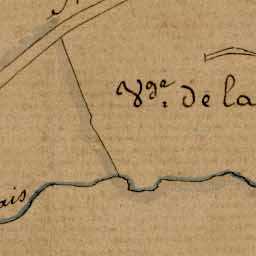 Vge. de la
ais